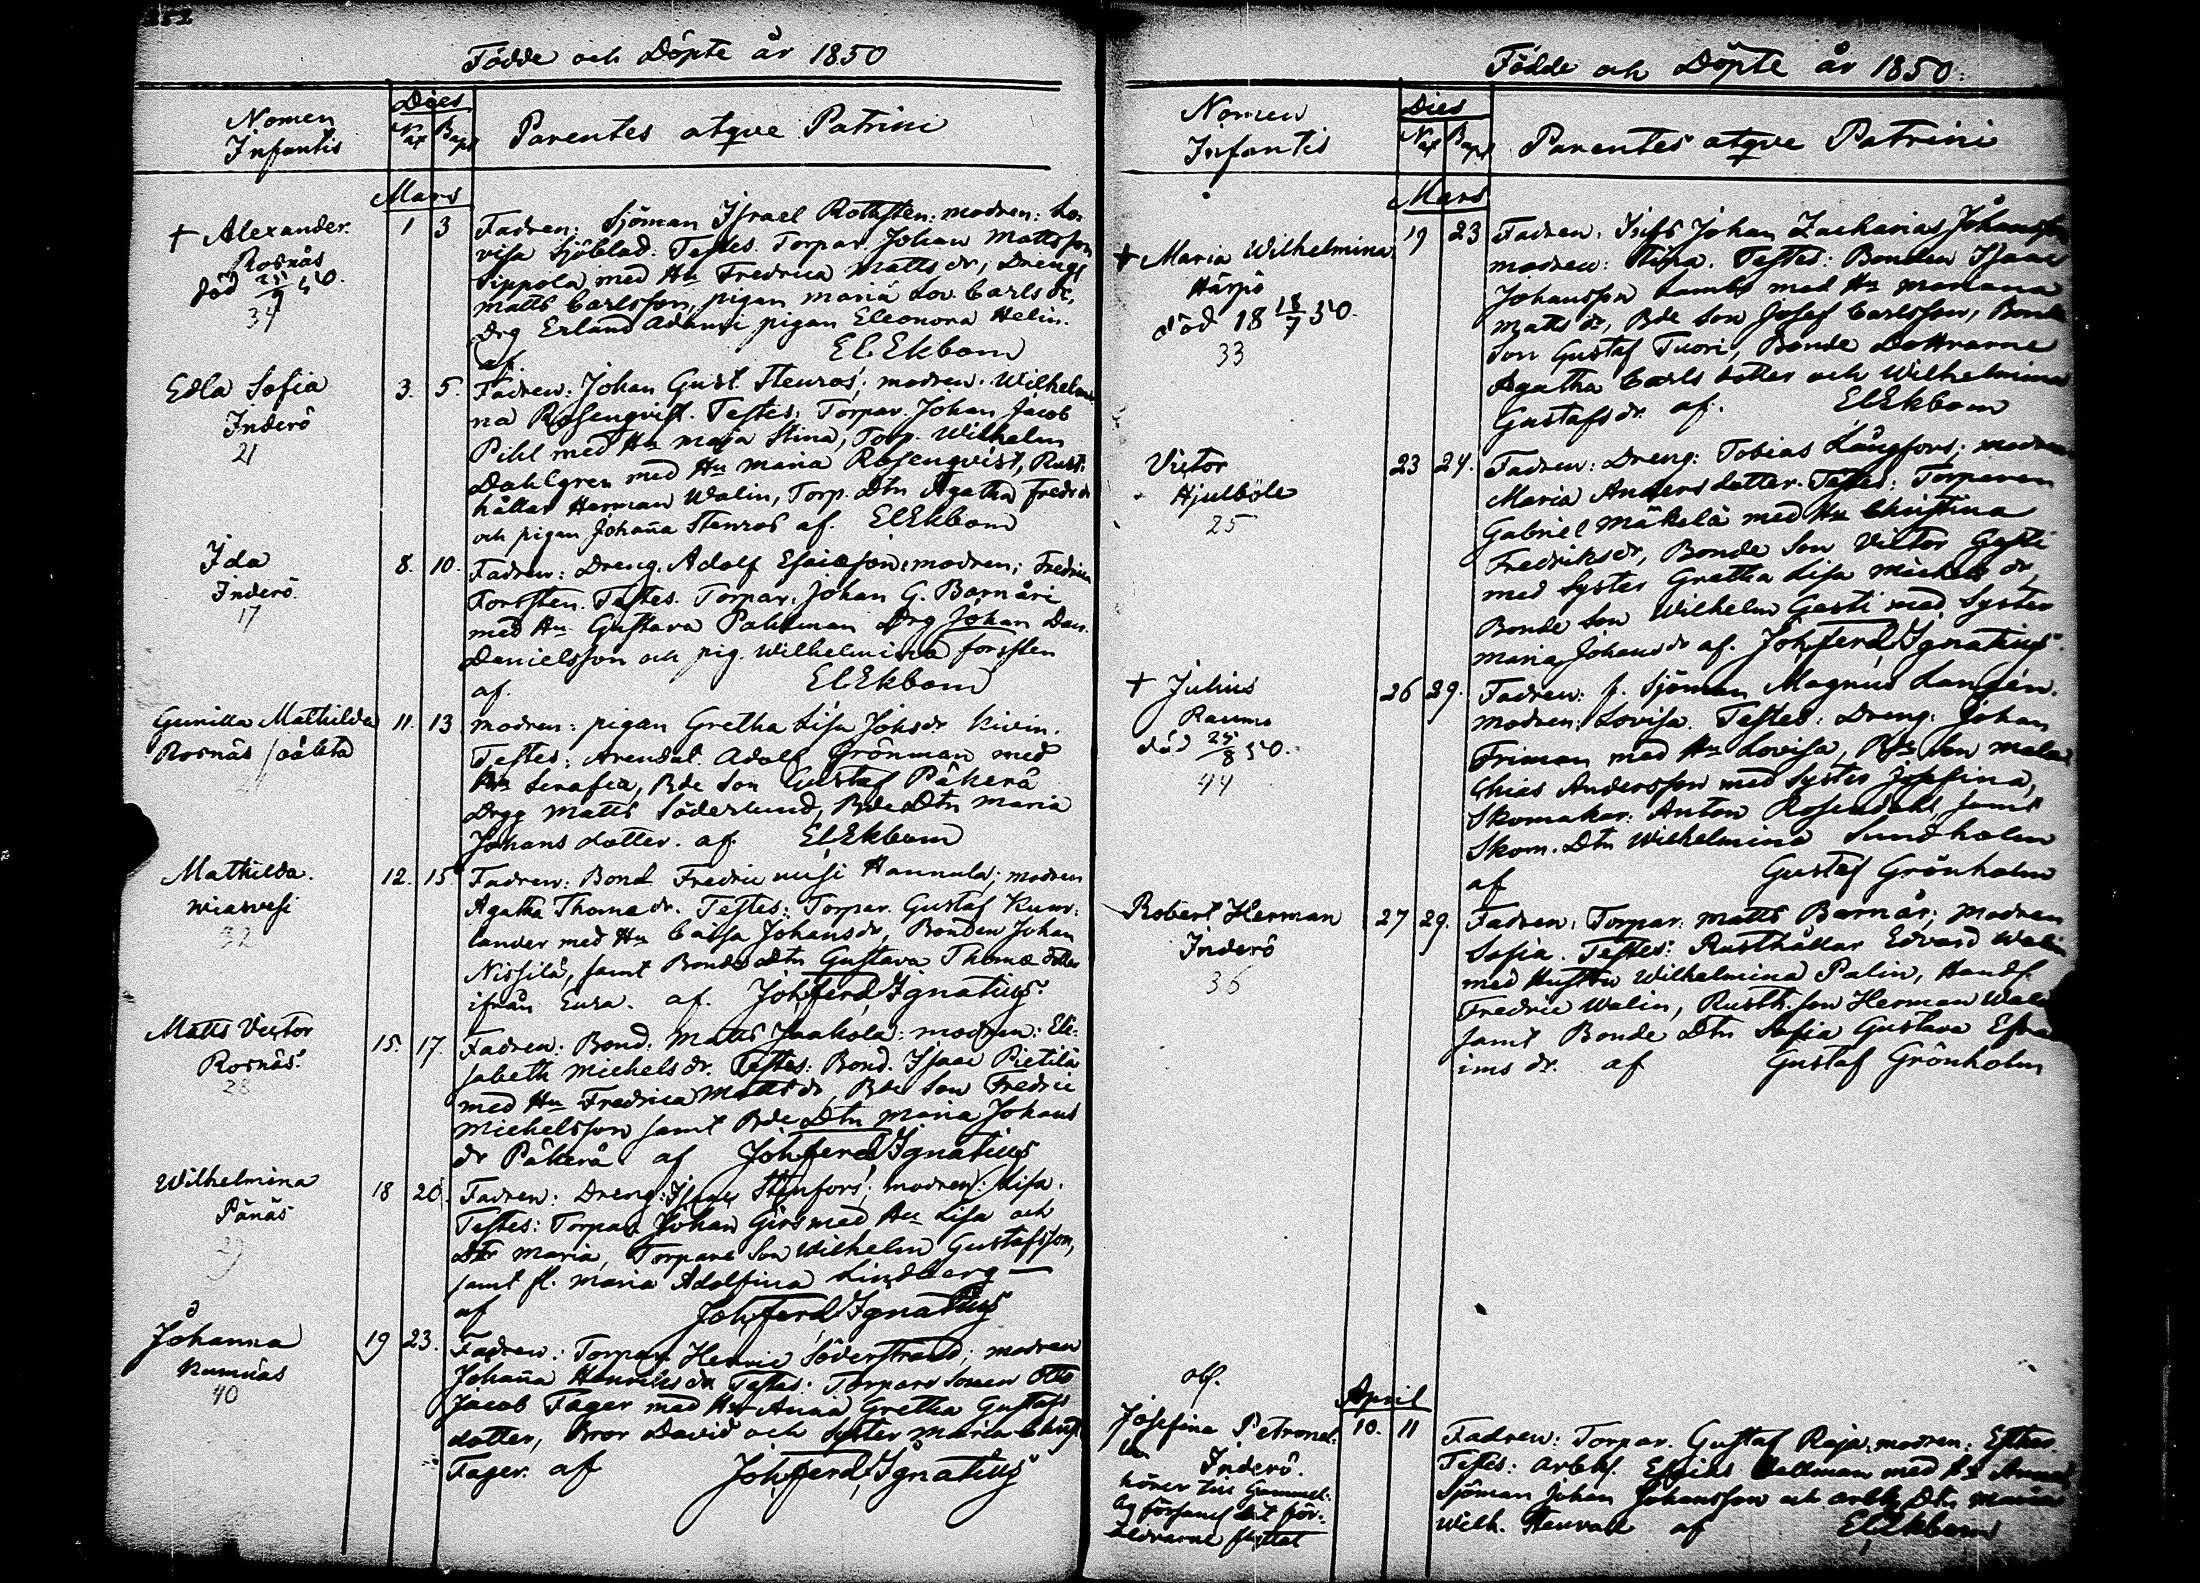 252
Födde och Döpte år 1850
Nomen
Infantis
Dies
Nat Bapt
Parentes atqve Patrini
Mars
† Alexander.
Rosnäs
död 25/9 50.
34
1 3
Fadren: Sjöman Israel Rothsten: modren: Lo-
visa Sjöblad. Testes. Torpar. Johan Mattsson
Sippola med Hu Fredrica Mattsdr, Dreng
Matts Carlsson, pigan Maria Lov. Carlsdr,
Drg Erland Adami pigan Eleonora Helin.
af. El Ekbom
Edla Sofia
Inderö
21
3. 5.
Fadren: Johan Gust. Stenros; modren. Wilhelmi
na Rosenqvist. Testes: Torpar. Johan Jacob
Pihl med Hu Maja Stina, Torp. Wilhelm
Dahlgren med Hu Maria Rosenqvist, Rust-
hållar Herman Walin, Torp. Dtn Agatha Fredrdr
och pigan Johaña Stenros af. ElEkbom
Ida
Inderö.
17
8. 10.
Fadren: Dreng. Adolf Esaiæson: modren; Fredrica
Forssten. Testes. Torpar. Johan G. Barnåri
med Hu Gustava Palmman Drg Johan Dan.
Danielsson och pig. Wilhelmina Forssten
af. ElEkbom
Gunilla Mathilda
Rosnäs / oäkta
11. 13
Modren: pigan Gretha Lisa Johsdr Kivin.
Testes: Arendat. Adolf Grönman med
Hu Serafia, Bde Son Gustaf Päkerä
Drgg Matts Söderlund, Bde Dtn Maria
Johansdotter. af. ElEkbom
Mathilda.
Wiasvesi
32
12. 15
Fadren: Bond Fredric Hannula; modren
Agatha Thomædr. Testes: Torpar. Gustaf Kum-
lander med Hu Cajsa Johansdr, Bonden Johan
Nissilä, samt Bonde Dtn Gustava Thomæ dotter
ifrån Eura. af. JohFerdIgnatius.
Matts Victor
Rosnäs.
28
15. 17.
Fadren: Bond. Matts Jaakola: modren: Eli-
sabeth Michelsdr. Testes: Bond. Isaac Pietilä
med Hu Fredrica Mattsdr, Bde Son Fredric
Michelsson samt Bde Dtn Maria Johans
dr Päkerä. af JohFerdIgnatius
Wilhelmina
Pänäs
29
18 20.
Fadren: Dreng: Isaac Stenfors; modren: Lisa.
Testes: Torpar. Johan Girs med Hu Lisa och
Dtr Maria, Torpare Son Wilhelm Gustafsson,
samt fl. Maria Adolfina Lindberg —
af JohFerdIgnatius
Johanna
Kumnäs
40
19 23.
Fadren: Torpar. Henric Söderstrand; modren
Johaña Henriksdr Testes: Torpare Sonen Otto
Jacob Fager med Hu Anna Gretha Gustafs
dotter, Bror David och Syster Maria Christ
Fager. af JohFerdIgnatius
Födde och Döpte år 1850.
Nomen
Infantis
Dies
Nat Bapt
Parentes atqve Patrini
Mars
† Maria Wilhelmina
Härpö
död 18 18/7 50.
33
19 23
Fadren: Johan Zacharias Johansson
modren: Stina. Testes: Bonden Isaac
Johansson Lambi med Hu Mariana
Mattsdr, Bde Son Josef Carlsson, Bonde
Son Gustaf Tuori, Bonde Döttrarne
Agatha Carls dotter och Wilhelmina
Gustafsdr. af. ElEkbom
Victor
Hjulböle
25
23 24.
Fadren: Dreng: Tobias Långfors; modren
Maria Anders dotter. Testes: Torparen
Gabriel Mäkelä med Hu Christina
Fredriksdr, Bonde Son Victor Gesti
med Syster Gretha Lisa Michelsdr,
Bonde Son Wilhelm Gesti med Syster
Maria Johansdr af. JohFerdIgnatius.
† Julius
Raumo
död 25/8 50.
44
26 29.
Fadren: f. Sjöman Magnus Langén.
modren: Lovisa. Testes: Dreng: Johan
Friman med Hu Lovisa, Bde Son Mala-
chias Andersson med Syster Josefina,
Skomakar. Anton Rosendahl, samt
Skom. Dtn Wilhelmina Sundholm
af Gustaf Grönholm
Robert Herman
Inderö
36
27 29.
Fadren: Torpar. Matts Barnår; modren
Sofia. Testes: Rusthållar Edvard Walin
med Hustru Wilhelmina Palin, Handl.
Fredric Walin, Rusth. son Herman Walin
samt Bonde Dtn Sofia Gustava Efra
ims dr. af Gustaf Grönholm
April
Josefina Petronel-
la Inderö.
hörer till Gammel-
by församl dit för-
äldrarne flyttat
10. 11
Fadren: Torpar. Gustaf Raja, modren: Esther
Testes: Arbk. Esaias Hellman med Hu Anna
Sjöman Johan Johansson och arbk Dtn Maria
Wilh. Stenvall af ElEkbom